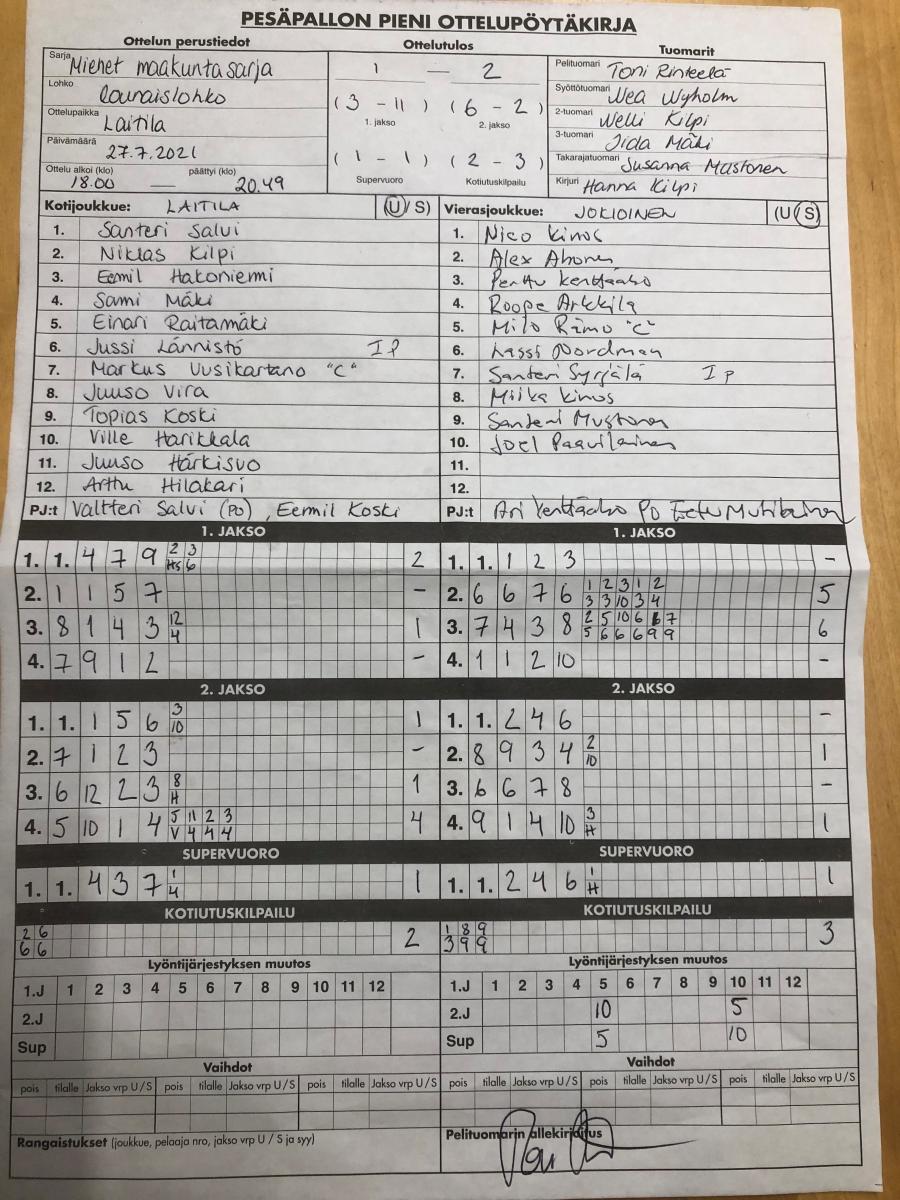 PESÄPALLON PIENI OTTELUPÖYTÄKIRJA
Ottelun perustiedot
Sarja Miehet maakuntasarja
Lohko lounaislohko
Ottelupaikka Laitila
Päivämäärä 27.7.2021
Ottelu alkoi (klo) päättyi (klo)
18.00 — 20.49
Ottelutulos
1 — 2
(3 - 11) (6 - 2)
1. jakso 2. jakso
(1 - 1) (2 - 3)
Supervuoro Kotiutuskilpailu
Tuomarit
Pelituomari Toni Rinteelä
Syöttötuomari Nea Nyholm
2-tuomari Welli Kilpi
3-tuomari Iida Mäki
Takarajatuomari Susanna Mustonen
Kirjuri Hanna Kilpi
Kotijoukkue: LAITILA (U/S)
1. Santeri Salvi
2. Niklas Kilpi
3. Eemil Hakoniemi
4. Sami Mäki
5. Einari Raitamäki
6. Jussi Lännistö IP
7. Markus Uusikartano "C"
8. Juuso Vira
9. Topias Koski
10. Ville Harikkala
11. Juuso Härkisuo
12. Arttu Hilakari
PJ:t Valtteri Salvi (PO), Eermil Koski
Vierasjoukkue: JOKIOINEN (U/S)
1. Nico Kinos
2. Alex Ahonen
3. Perttu Kenttäaho
4. Roope Arkkila
5. Milo Rämö "C"
6. Lassi Nordman
7. Santeri Syrjälä IP
8. Miika Kinos
9. Santeri Mustonen
10. Joel Paavilainen
11.
12.
PJ:t Ari Kenttäaho PO Eetu
1. JAKSO
1. 1. 4 7 9 2 3 2
Hs 6
2. 1 1 5 7 -
3. 8 1 4 3 12 1
4
4. 7 9 1 2 -
1. JAKSO
1. 1. 1 2 3 -
2. 6 6 7 6 1 2 3 1 2 5
3 3 10 3 4
3. 7 4 3 8 2 5 10 6 6 7 6
5 6 6 6 9 9
4. 1 1 2 10 -
2. JAKSO
1. 1. 1 5 6 3 1
10
2. 7 1 2 3 -
3. 6 12 2 3 8 1
H
4. 5 10 1 4 5 11 2 3 4
V 4 4 4
2. JAKSO
1. 1. 2 4 6 -
2. 8 9 3 4 2 1
10
3. 6 6 7 8 -
4. 9 1 4 10 3 1
H
SUPERVUORO
1. 1. 4 3 7 1 1
4
SUPERVUORO
1. 1. 2 4 6 1 1
H
KOTIUTUSKILPAILU
2 6 2
6 6
KOTIUTUSKILPAILU
1 8 9 3
3 9 9
Lyöntijärjestyksen muutos
1.J 1 2 3 4 5 6 7 8 9 10 11 12
2.J
Sup
Lyöntijärjestyksen muutos
1.J 1 2 3 4 5 6 7 8 9 10 11 12
2.J 10 5
Sup 5 10
Vaihdot
pois tilalle Jakso vrp U/S pois tilalle Jakso vrp U/S pois tilalle Jakso vrp U/S
Vaihdot
pois tilalle Jakso vrp U/S pois tilalle Jakso vrp U/S pois tilalle Jakso vrp U/S
Rangaistukset (joukkue, pelaaja nro, jakso vrp U / S ja syy)
Pelituomarin allekirjoitus